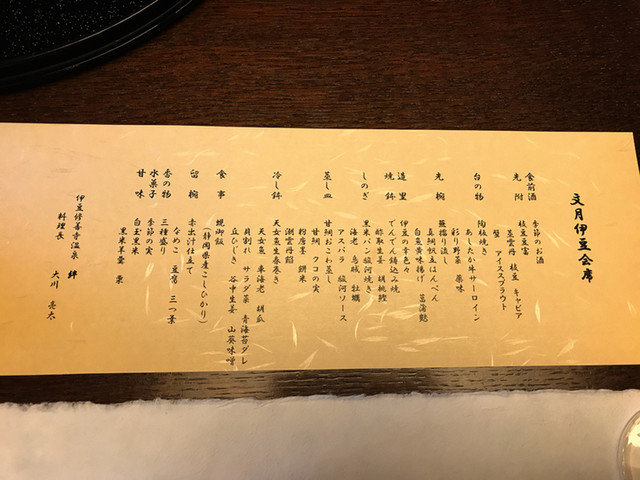 文月伊豆会席
食前酒 季節のお酒
先附 枝豆豆富
蒸雲丹 枝豆 キャビア
蟹 アイスプラウト
台の物 陶板焼き
あしたか牛サーロイン
彩り野菜 薬味
先椀 蕪摺り流し
真鯛帆立はんぺん
白魚東揚げ 菖蒲麩
造里 伊豆の幸色々
焼鉢 でんでん鋳込み焼
酢取生姜 胡桃鰹
しのぎ 黒米パン駿河焼き
海老 烏賊 牡蠣
アスパラ 駿河ソース
蒸し皿 甘鯛おこわ蒸し
甘鯛 クコの実
粉唐墨 餅米
潮雲丹餡
冷し鉢 天女魚生春巻き
天女魚 車海老 胡瓜
貝割れ サラダ菜 青海苔ダレ
食事 蜆御飯
丘ひじき 谷中生姜 山葵味噌
(静岡県産こしひかり)
留椀 赤出汁仕立て
なめこ 豆腐 三つ葉
香の物 三種盛り
水菓子 季節の実
甘味 白玉黒米
黒米羊羹 栗
伊豆修善寺温泉 絆
料理長 大川